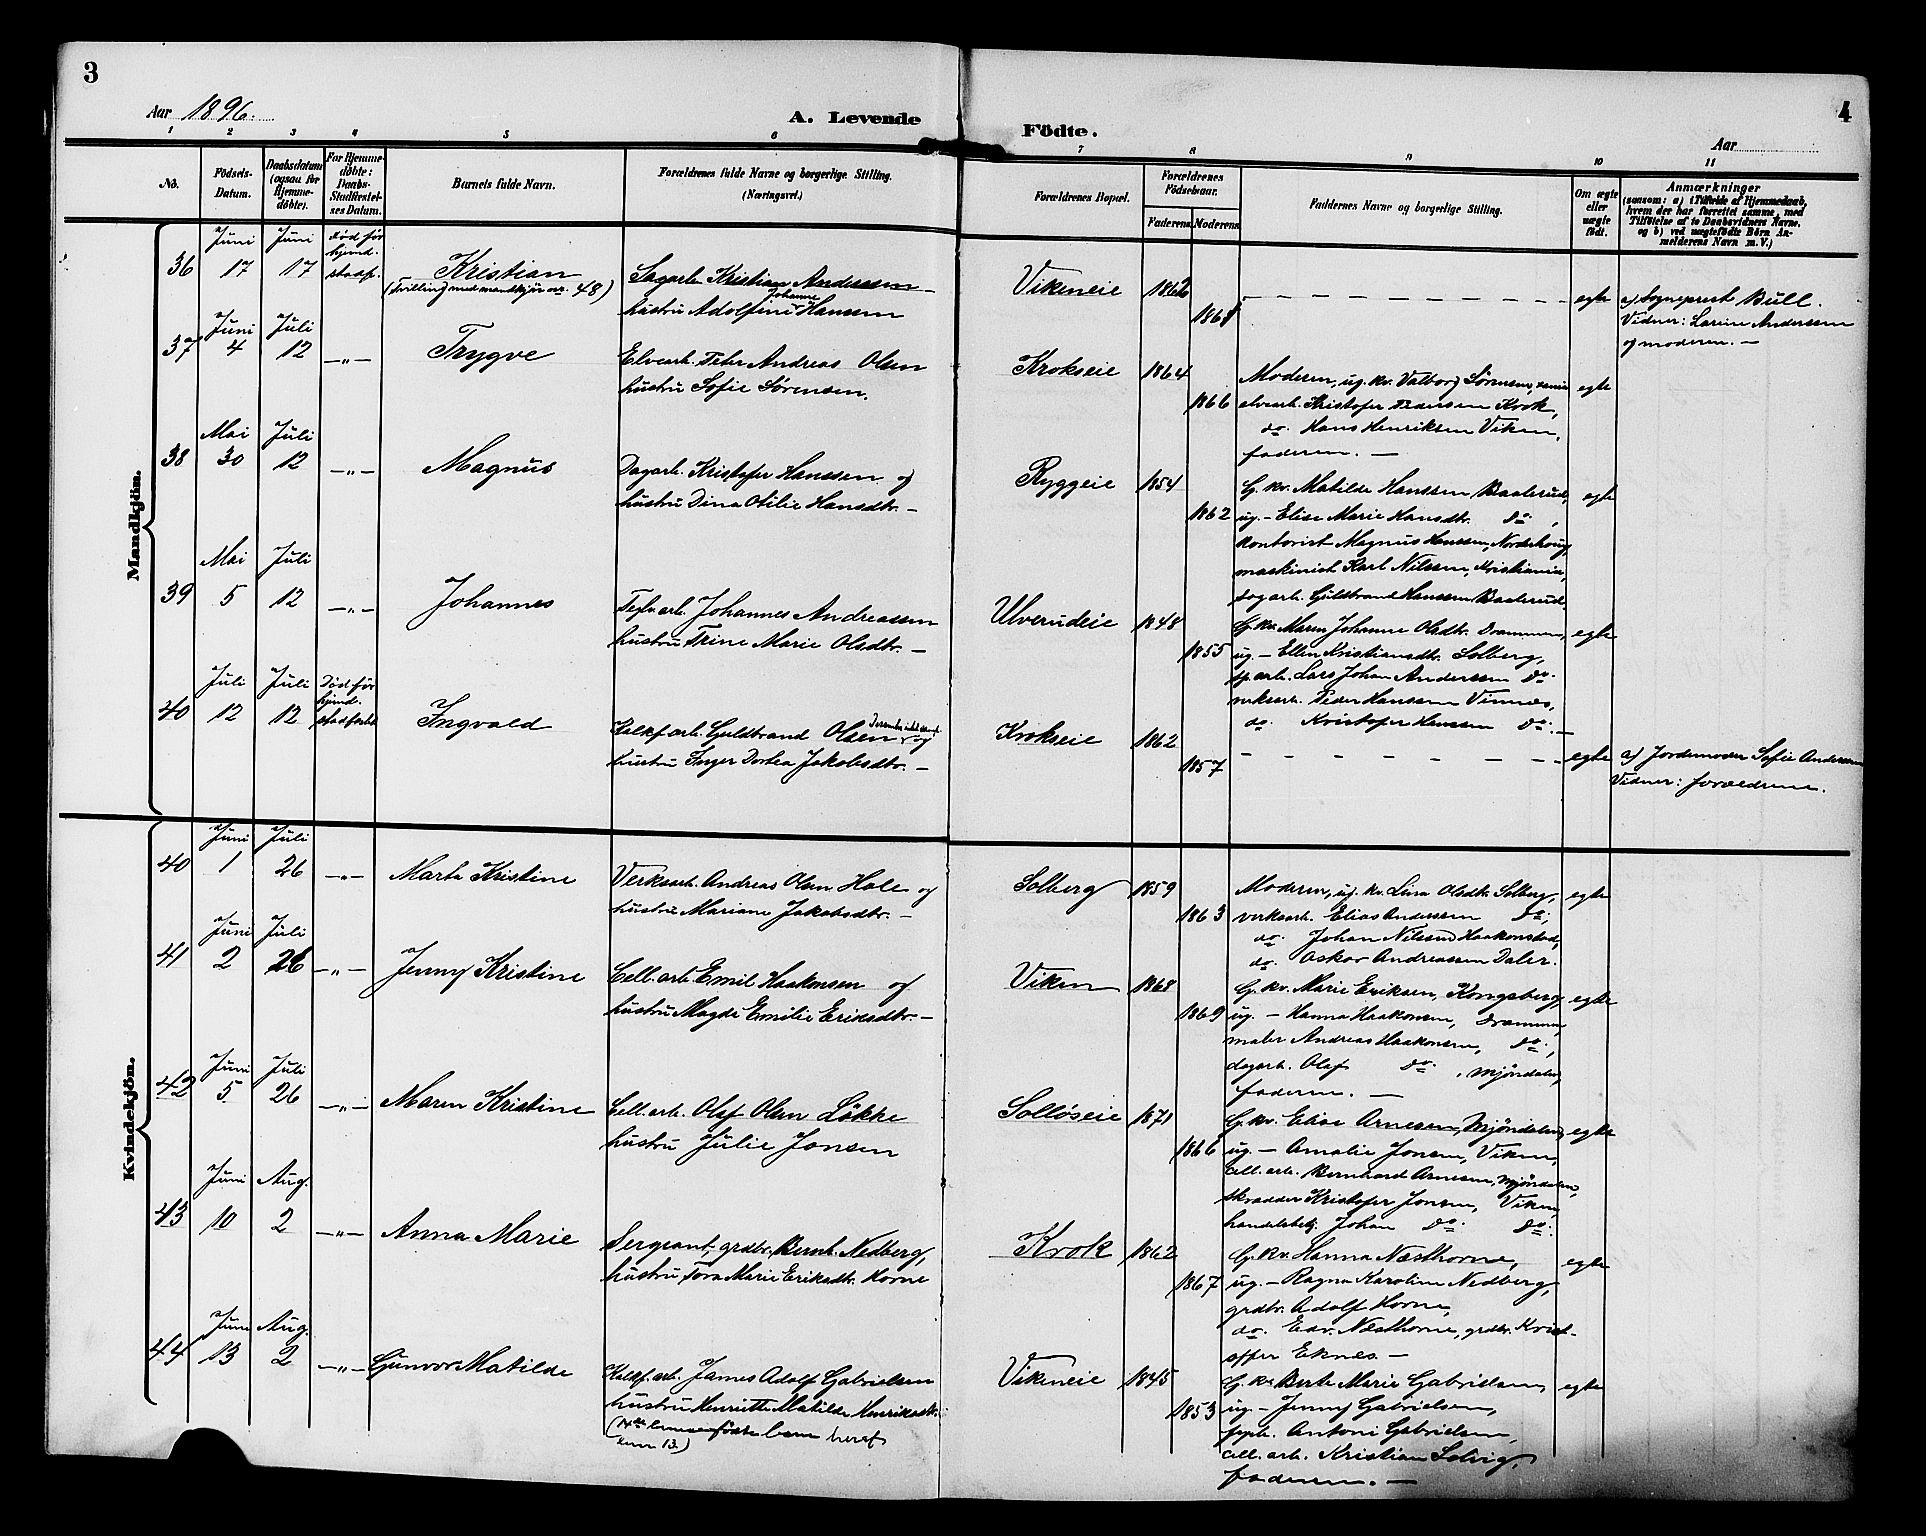 3
4
Aar 1896.
A. Levende
Födte.
Aar
1 2 3 4 5 6 7 8 9 10 11
No.
Födsels-
Datum.
Daabsdatum
(ogsaa for
Hjemme-
döbte).
For Hjemme-
döbte:
Daabs-
Stadfestel-
ses Datum.
Barnets fulde Navn.
Forældrenes fulde Navne og borgerlige Stilling.
(Næringsvei.)
Forældrenes Bopæl.
Forældrenes
Födselsaar.
Faderens Moderens
Faddernes Navne og borgerlige Stilling.
Om ægte
eller
uægte
födt.
Anmærkninger
(saasom: a) i Tilfælde af Hjemmedaab,
hvem der har forrettet samme, med
Tilföielse af to Daabsvidners Navne,
og b) ved uægtefödte Börn An-
melderens Navn m. V.)
Mandkjön.
36 Juni 17 Juni 17 død før hjemd. stadf.
Kristian
(Tvilling med mandkjøn nr. 48)
Sagarb. Kristian Anderssen
hustru Adolfine Johanne Hansen
Vikeneie 1862 1868
egte
a) Sogneprest Bull.
Vidner: Larine Anderssen
og moderen. —
37 Juni 4 Juli 12 —„—
Trygve
Elvearb. Peter Andreas Olsen
hustru Sofie Sørensen.
Krokseie 1864 1866
Moderen, ug. kv. Valborg Sørensen,
elvearb. Kristofer Pedersen Krok,
do. Hans Henriksen Viken,
faderen. —
egte
38 Mai 30 Juli 12 —„—
Magnus
Dagarb. Kristofer Hanssen og
hustru Dina Otilie Hansdtr. —
Ryggeie 1854 1862
G. kv. Matilde Hanssen Baalerud,
ug. — Elise Marie Hansdtr. do,
kontorist Magnus Hanssen, Norderhoug
maskinist Karl Nilssen, Kristiania,
sagarb. Guldbrand Hanssen Baalerud
egte
39 Mai 5 Juli 12 —„—
Johannes
Teglv.arb. Johannes Andreassen
hustru Trine Marie Olsdtr. —
Ulverudeie 1848 1855
G. kv. Maren Johanne Olsdtr. Drammen,
ug. — Ellen Kristiansdtr. Solberg,
sp.arb. Lars Johan Anderssen do.
verksarb. Peder Hanssen Vinnes,
do. Kristofer Hanssen do. —
egte
40 Juli 12 Juli 12 Død før hjemd. stadfestet
Ingvald
Kalkf.arb. Guldbrand Olsen og
hustru Inger Dortea Jakobsdtr. —
Krokseie 1862 1857
egte
a) Jordemoder Sofie Anderssen
Vidner: forældrene.
Kvindekjön.
40 Juni 1 Juli 26 —„—
Marta Kristine
Verksarb. Andreas Olsen Hole og
hustru Mariane Jakobsdtr. —
Solberg 1859 1863
Moderen, ug. kv. Lina Olsdtr. Solberg,
verksarb. Elias Anderssen do,
do. Johan Nilssen Haakonstad,
do. Oskar Andreassen Daler.
egte
41 Juni 2 Juli 26 —„—
Jenny Kristine
Cell.arb. Emil Haakonsen og
hustru Magda Emilie Eriksdtr. —
Viken 1868 1869
G. kv. Marie Eriksen, Kongsberg,
ug. — Hanna Haakonsen, Drammen,
maler Andreas Haakonsen, do,
dagarb. Olaf do, Mjøndalen,
faderen. —
egte
42 Juni 5 Juli 26 —„—
Maren Kristine
Cell.arb. Olaf Olsen Løkke
hustru Julie Jonsen
Solløseie 1871 1866
G. kv. Elise Arnesen, Mjøndalen,
ug. — Amalie Jonsen, Viken,
cell.arb. Bernhard Arnesen, Mjøndalen,
skrædder Kristofer Jonsen, Viken,
handelsbetj. Johan do. do.
egte
43 Juni 10 Aug. 2 —„—
Anna Marie
Sergeant, grdbr. Bernt Nedberg,
hustru Tora Marie Eriksdtr. Horne
Krok 1862 1867
G. kv. Hanna Næsthorne,
ug. — Ragna Karoline Nedberg,
grdbr. Adolf Horne,
do. Edv. Næsthorne, grdbr. Krist-
offer Eknes —
egte
44 Juni 13 Aug. 2 —„—
Gunvor Matilde
Kalkf.arb. James Adolf Gabrielsen
hustru Henriette Matilde Henriksdtr.
Vikeneie 1845 1853
G. kv. Berte Marie Gabrielsen,
ug. — Jenny Gabrielsen,
Antoni Gabrielsen,
cell.arb. Kristian Solvig,
faderen. —
egte